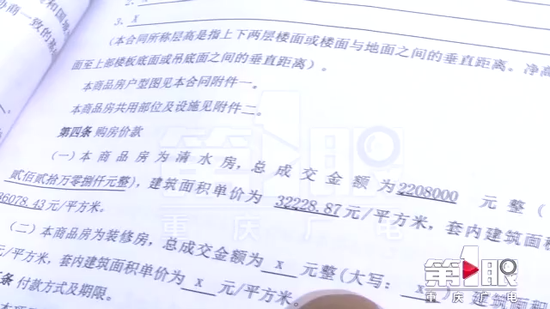 3. x
(本合同所称层高是指上下两层楼面或楼面与地面之间的垂直距离。净高
面至上部楼板底面或吊底面之间的垂直距离)。
本商品房户型图见本合同附件一。
本商品房共用部位及设施见附件二。
第四条 购房价款
(一)本商品房为清水房,总成交金额为2208000 元整(
贰佰贰拾万零捌仟元整),建筑面积单价为 32228.87元/平方米,套内建筑面积
36078.43元/平方米。
(二)本商品房为装修房,总成交金额为 x 元整(大写: x
元/平方米,套内建筑面积单价为 x 元/平方米。
条 付款方式及期限。
第1眼
重庆广电
第1眼
重庆广电